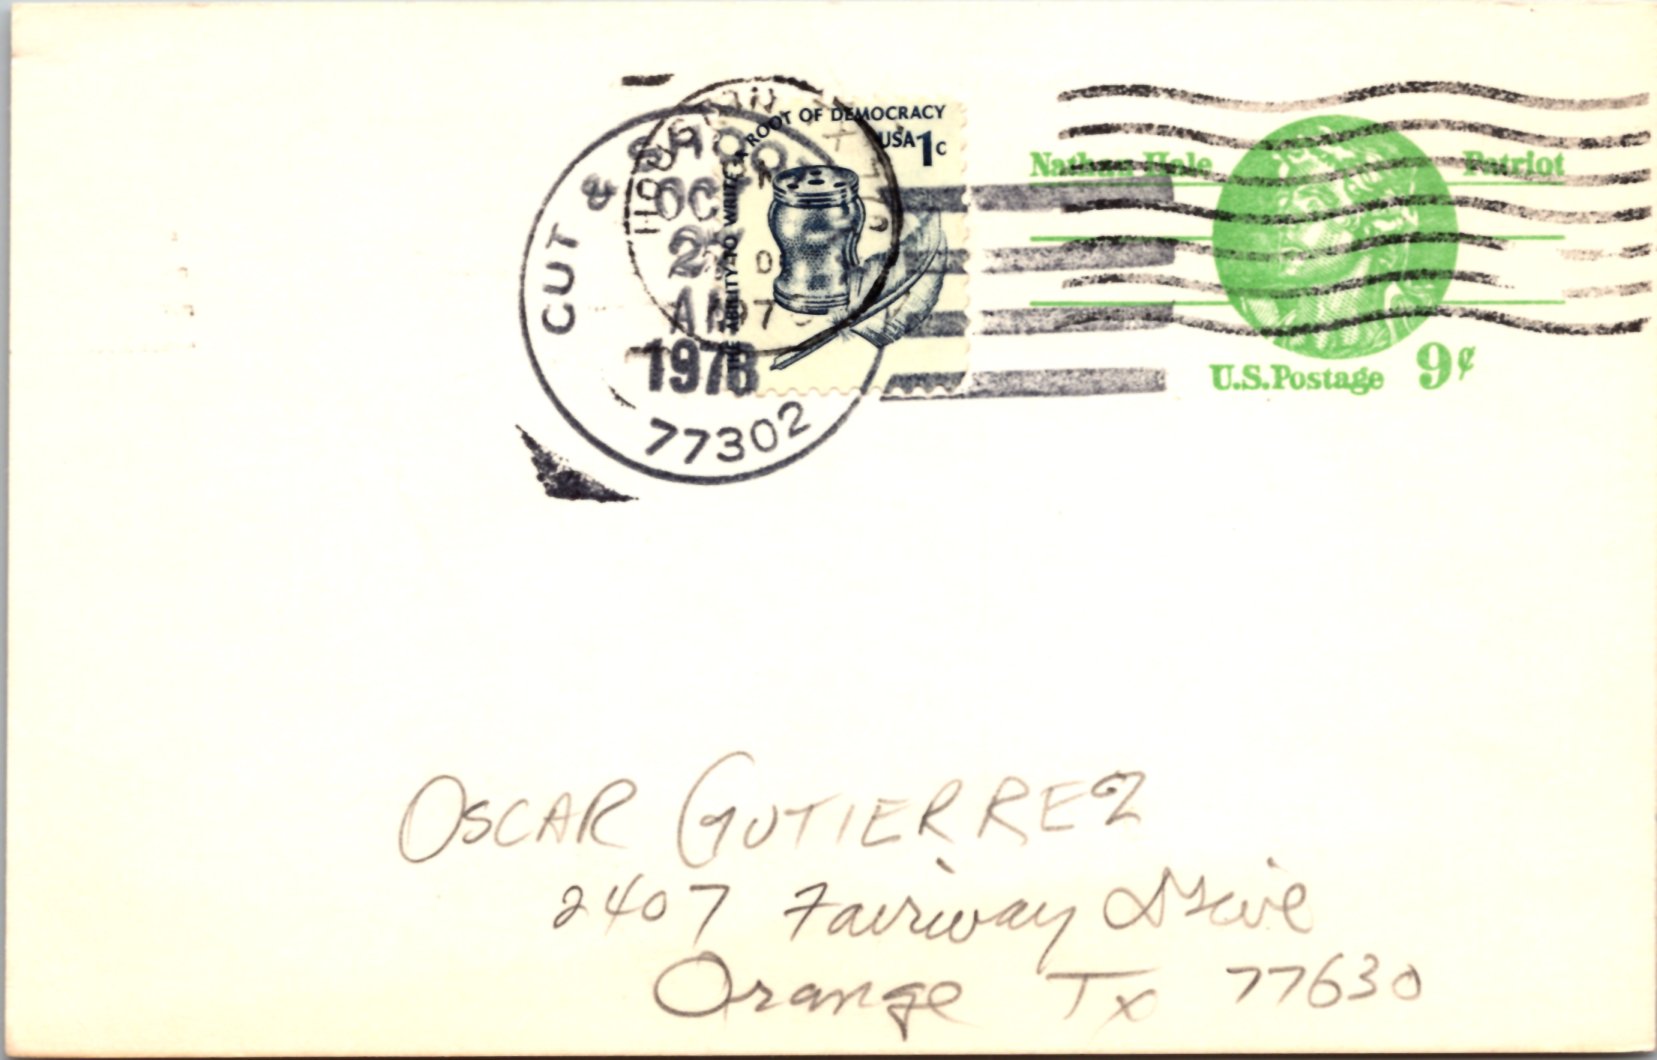 CUT & SHOOT
OCT
27
AM
1978
77302
HOUSTON, TX
THE ABILITY TO WRITE. A ROOT OF DEMOCRACY
USA 1c
Nathan Hale Patriot
U.S. Postage 9¢
OSCAR GUTIERREZ
2407 Fairway Drive
Orange Tx 77630